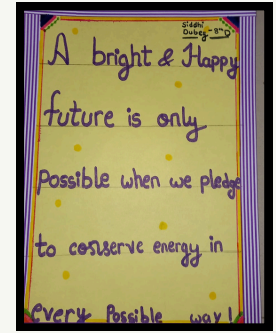 Siddhi
Dubey - 8th D
A bright & Happy
future is only
possible when we pledge
to conserve energy in
every Possible way!